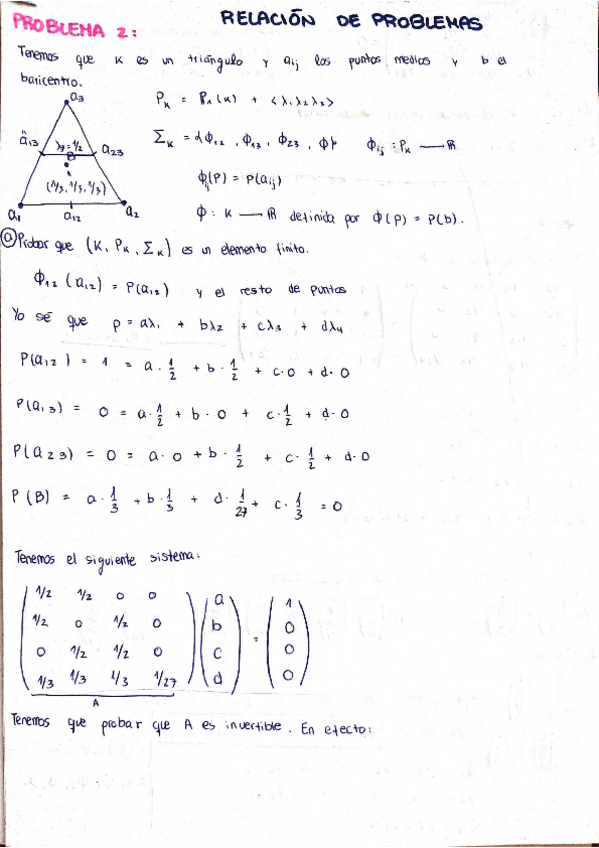 RELACIÓN DE PROBLEMAS
PROBLEMA 2:
Tenemos que K es un triángulo y aij los puntos medios y b el
baricentro.
a3
a13
λ3=1/2
a23
B
(1/3, 1/3, 1/3)
a1
a12
a2
PK = P1(K) + <λ1λ2λ3>
ΣK = {Φ12, Φ13, Φ23, Φ} Φij : PK → ℝ
Φij(P) = P(aij)
Φ : K → ℝ definida por Φ(P) = P(b).
ⓐ Probar que (K, PK, ΣK) es un elemento finito.
Φ12 (a12) = P(a12) y el resto de puntos
Yo sé que p = aλ1 + bλ2 + cλ3 + dλ4
P(a12) = 1 = a·1/2 + b·1/2 + c·0 + d·0
P(a13) = 0 = a·1/2 + b·0 + c·1/2 + d·0
P(a23) = 0 = a·0 + b·1/2 + c·1/2 + d·0
P(B) = a·1/3 + b·1/3 + d·1/27 + c·1/3 = 0
Tenemos el siguiente sistema:
1/2 1/2 0 0 a 1
1/2 0 1/2 0 b 0
0 1/2 1/2 0 c = 0
1/3 1/3 1/3 1/27 d 0
A
Tenemos que probar que A es invertible. En efecto: